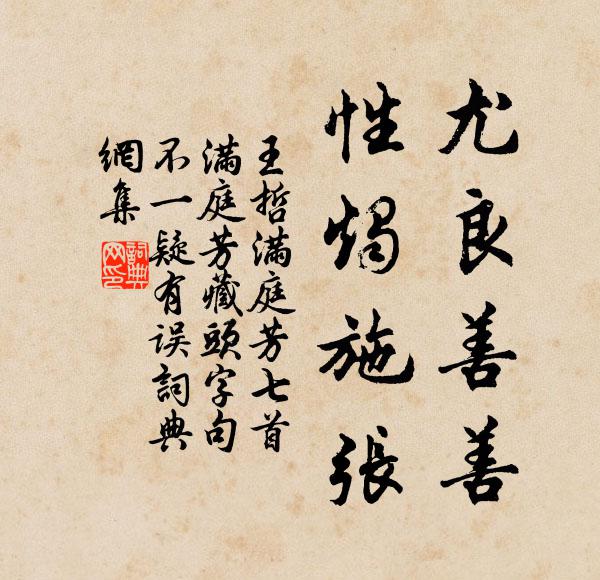 尤良善善
性燭施張
王哲滿庭芳七首
滿庭芳藏頭字句
不一疑有误詞典
網集
詞典網印